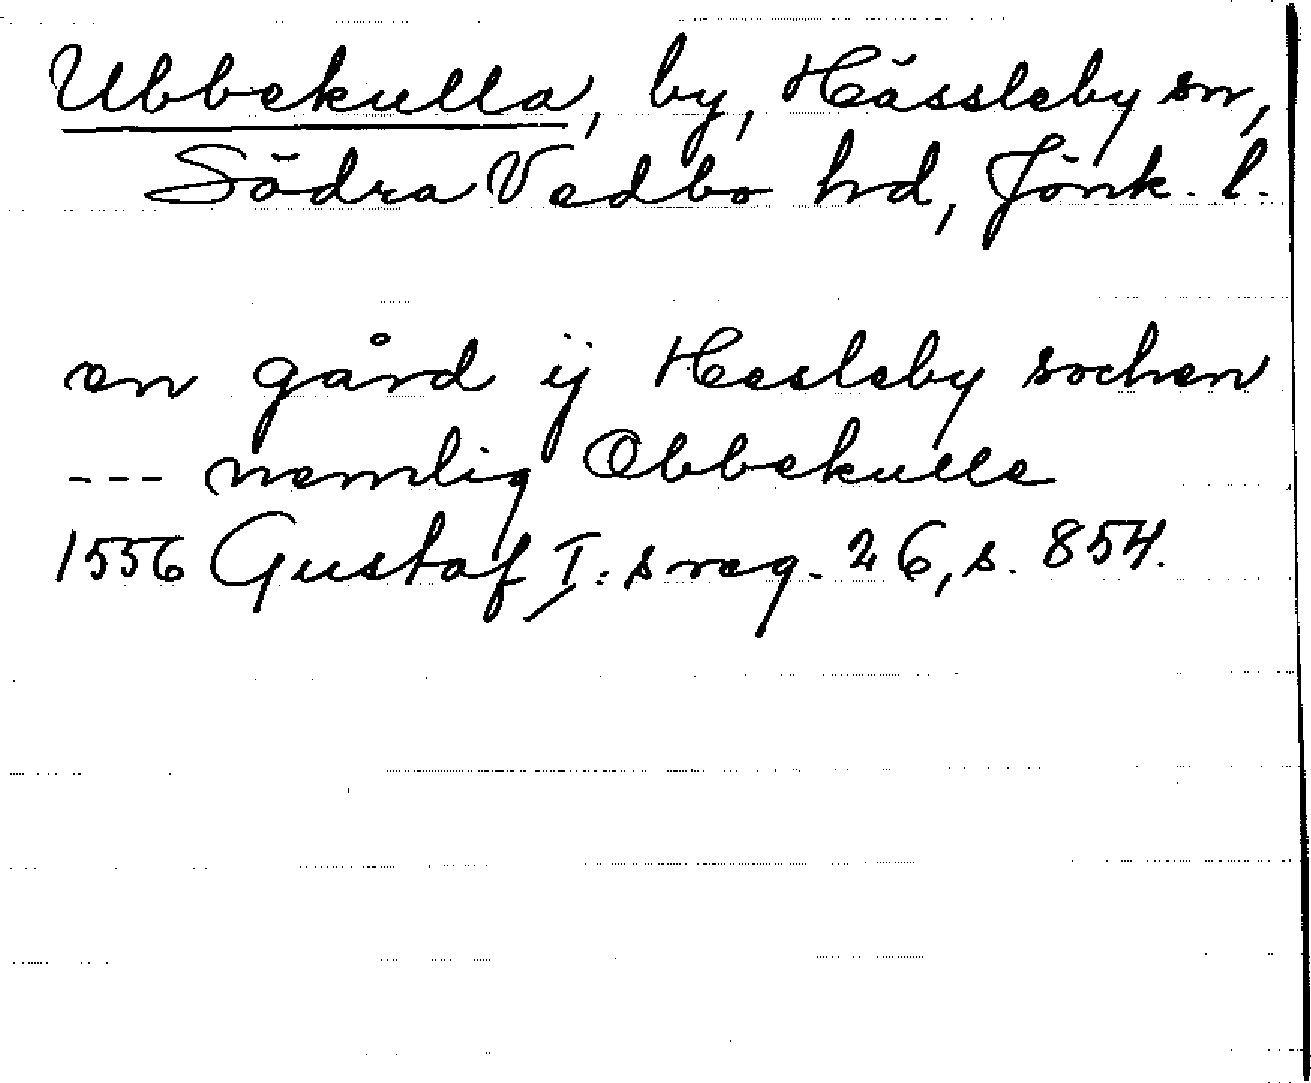 Ubbekulla, by, Hässleby sn,
Södra Vedbo hd, Jönk. l.
en gård ij Hesleby sochen
--- nemlig Obbekulle
1556 Gustaf I:s reg. 26, s. 854.